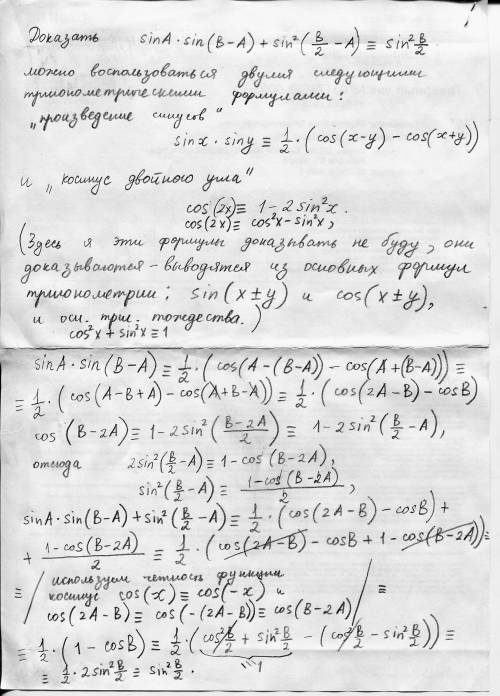 Доказать sinA·sin(B−A) + sin²(B/2 −A) ≡ sin² B/2.
можно воспользоваться двумя следующими
тригонометрическими формулами:
„произведение синусов"
sinx·siny ≡ 1/2·(cos(x−y) − cos(x+y))
и „косинус двойного угла"
cos(2x) ≡ 1−2sin²x.
cos(2x) ≡ cos²x−sin²x,
(Здесь я эти формулы доказывать не буду, они
доказываются − выводятся из основных формул
тригонометрии: sin(x±y) и cos(x±y),
и осн. триг. тождества.)
cos²x + sin²x ≡ 1
sinA·sin(B−A) ≡ 1/2·(cos(A−(B−A)) − cos(A+(B−A))) ≡
≡ 1/2·(cos(A−B+A) − cos(A+B−A)) ≡ 1/2·(cos(2A−B) − cosB)
cos(B−2A) ≡ 1−2sin²((B−2A)/2) ≡ 1−2sin²(B/2 −A),
отсюда 2sin²(B/2 −A) ≡ 1−cos(B−2A),
sin²(B/2 −A) ≡ (1−cos(B−2A))/2,
sinA·sin(B−A) + sin²(B/2 −A) ≡ 1/2·(cos(2A−B) − cosB) +
+ (1−cos(B−2A))/2 ≡ 1/2·(cos(2A−B) − cosB + 1 − cos(B−2A)) ≡
≡ / используем четность функции
косинус cos(x) ≡ cos(−x) и
cos(2A−B) ≡ cos(−(2A−B)) ≡ cos(B−2A) / ≡
≡ 1/2·(1−cosB) ≡ 1/2·(cos² B/2 + sin² B/2 − (cos² B/2 − sin² B/2)) ≡
1
≡ 1/2·2sin² B/2 ≡ sin² B/2.